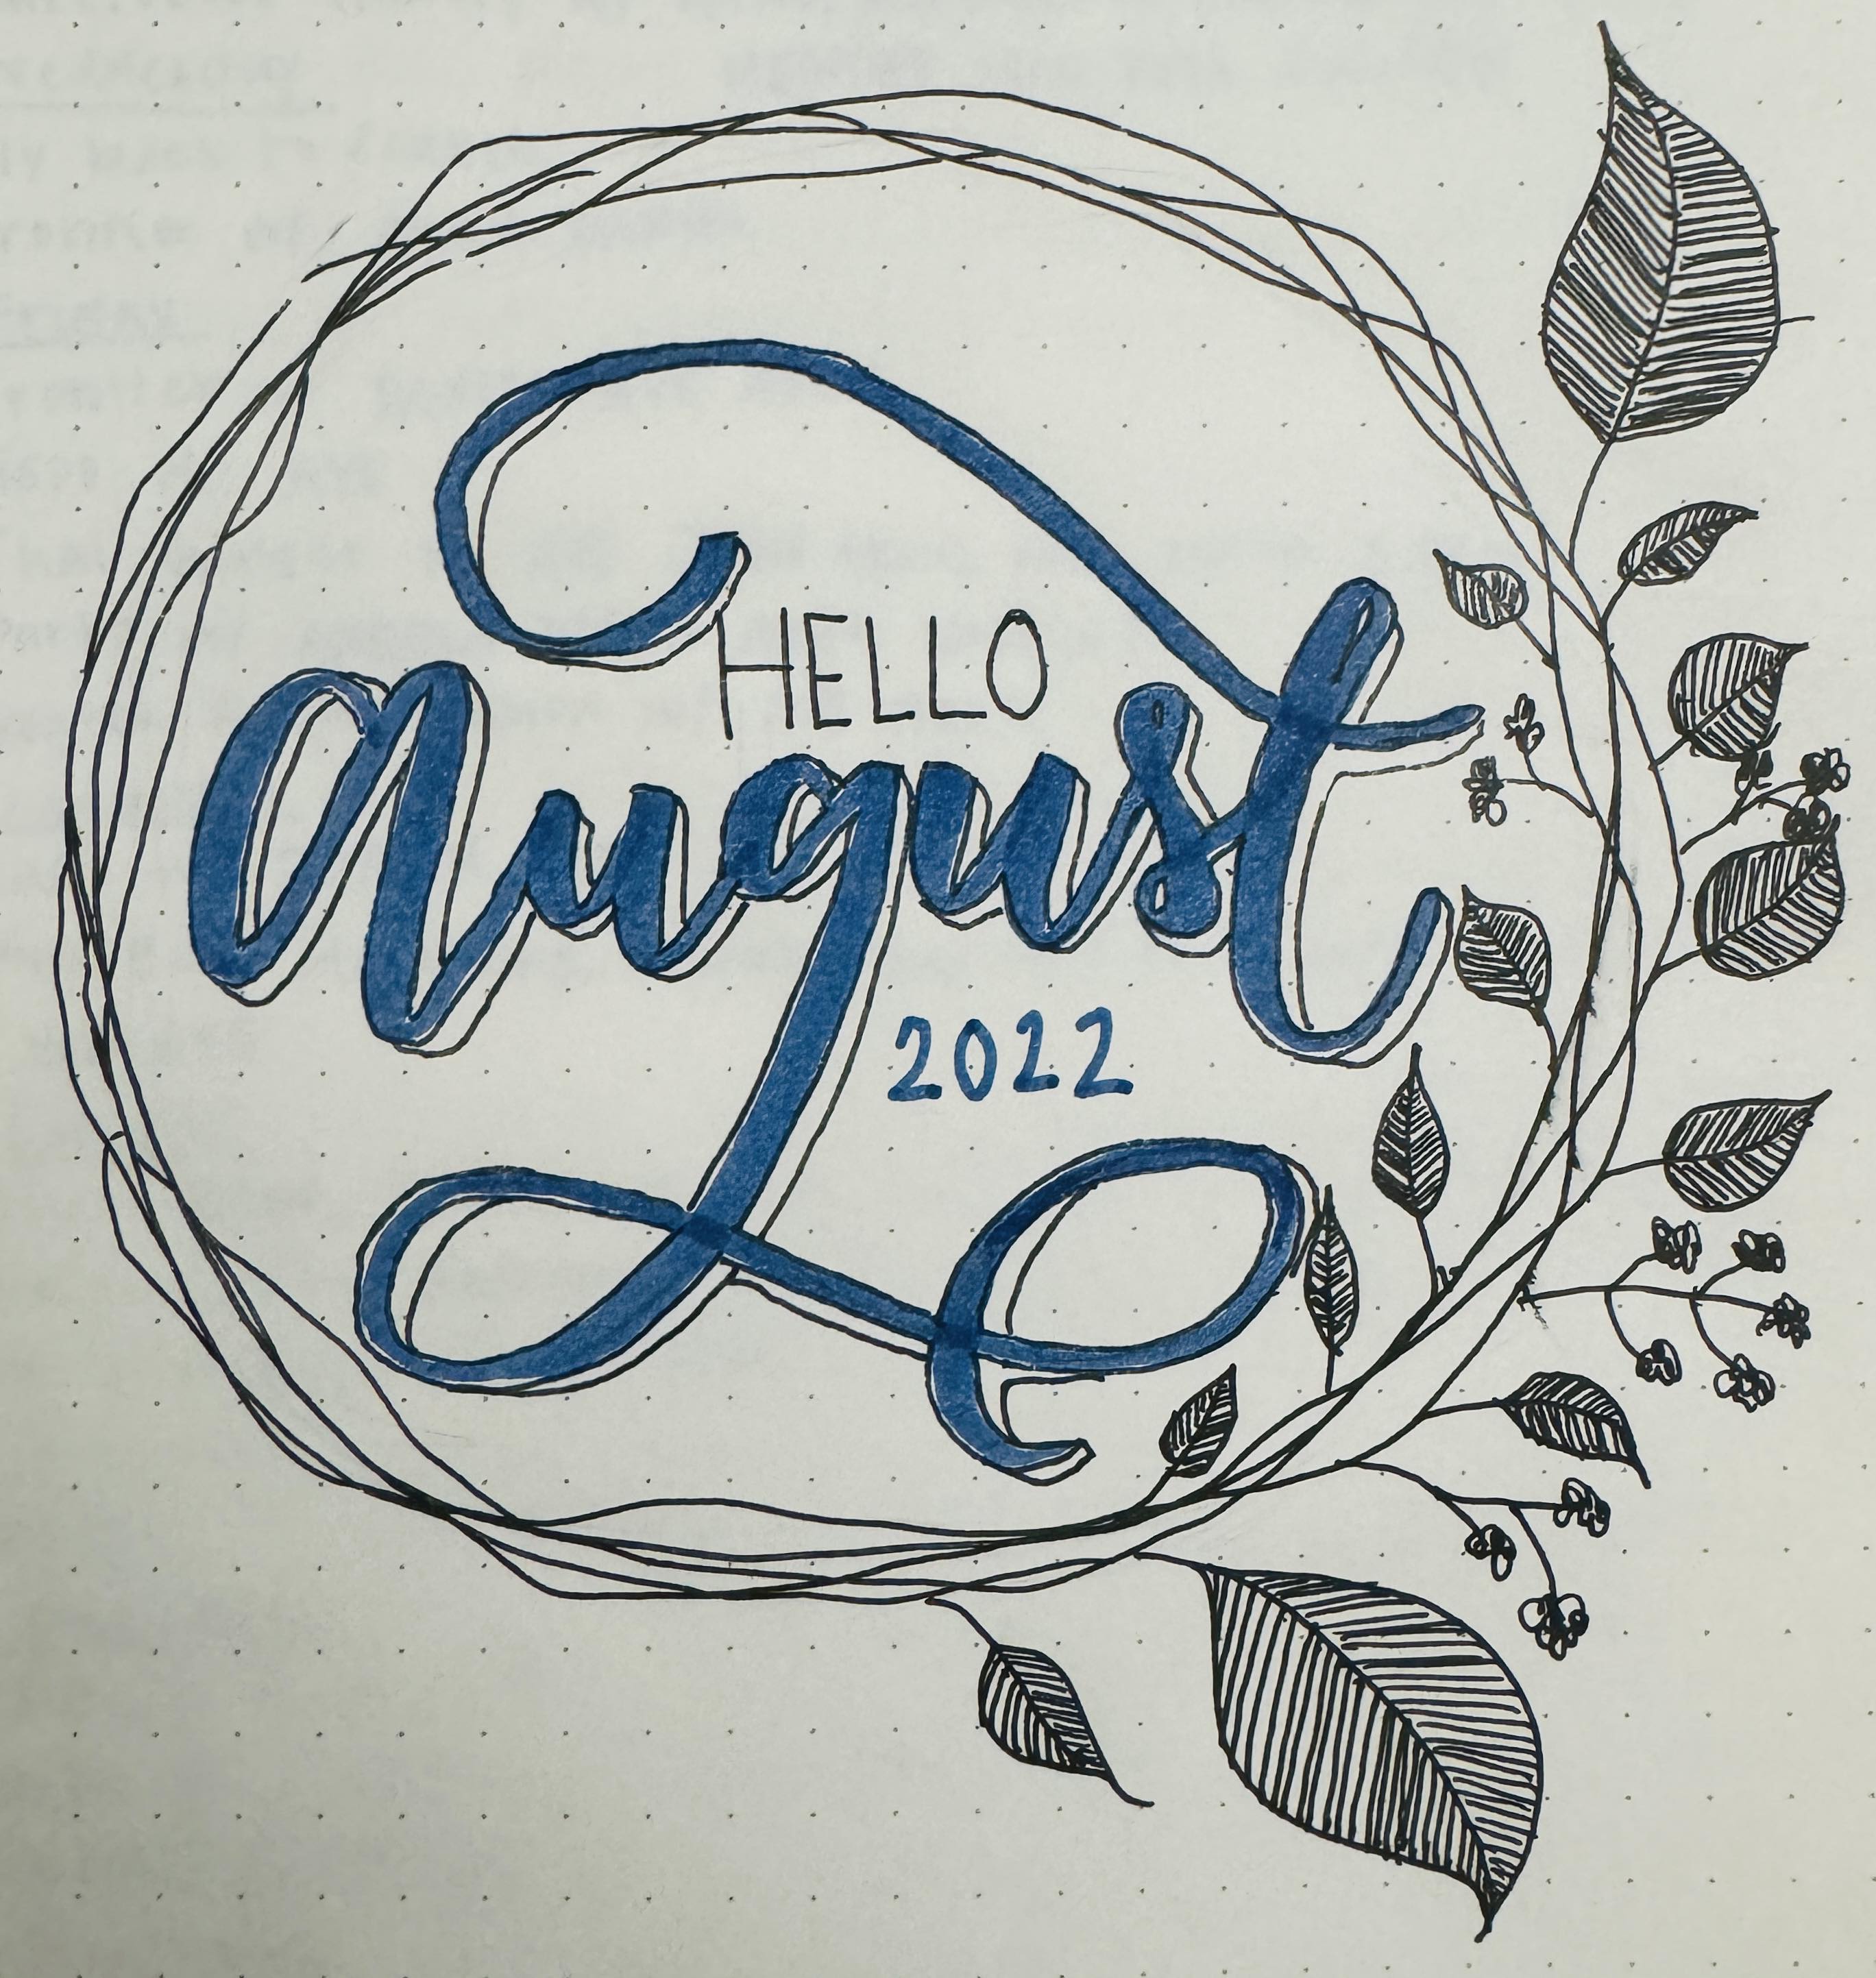 HELLO
August
2022